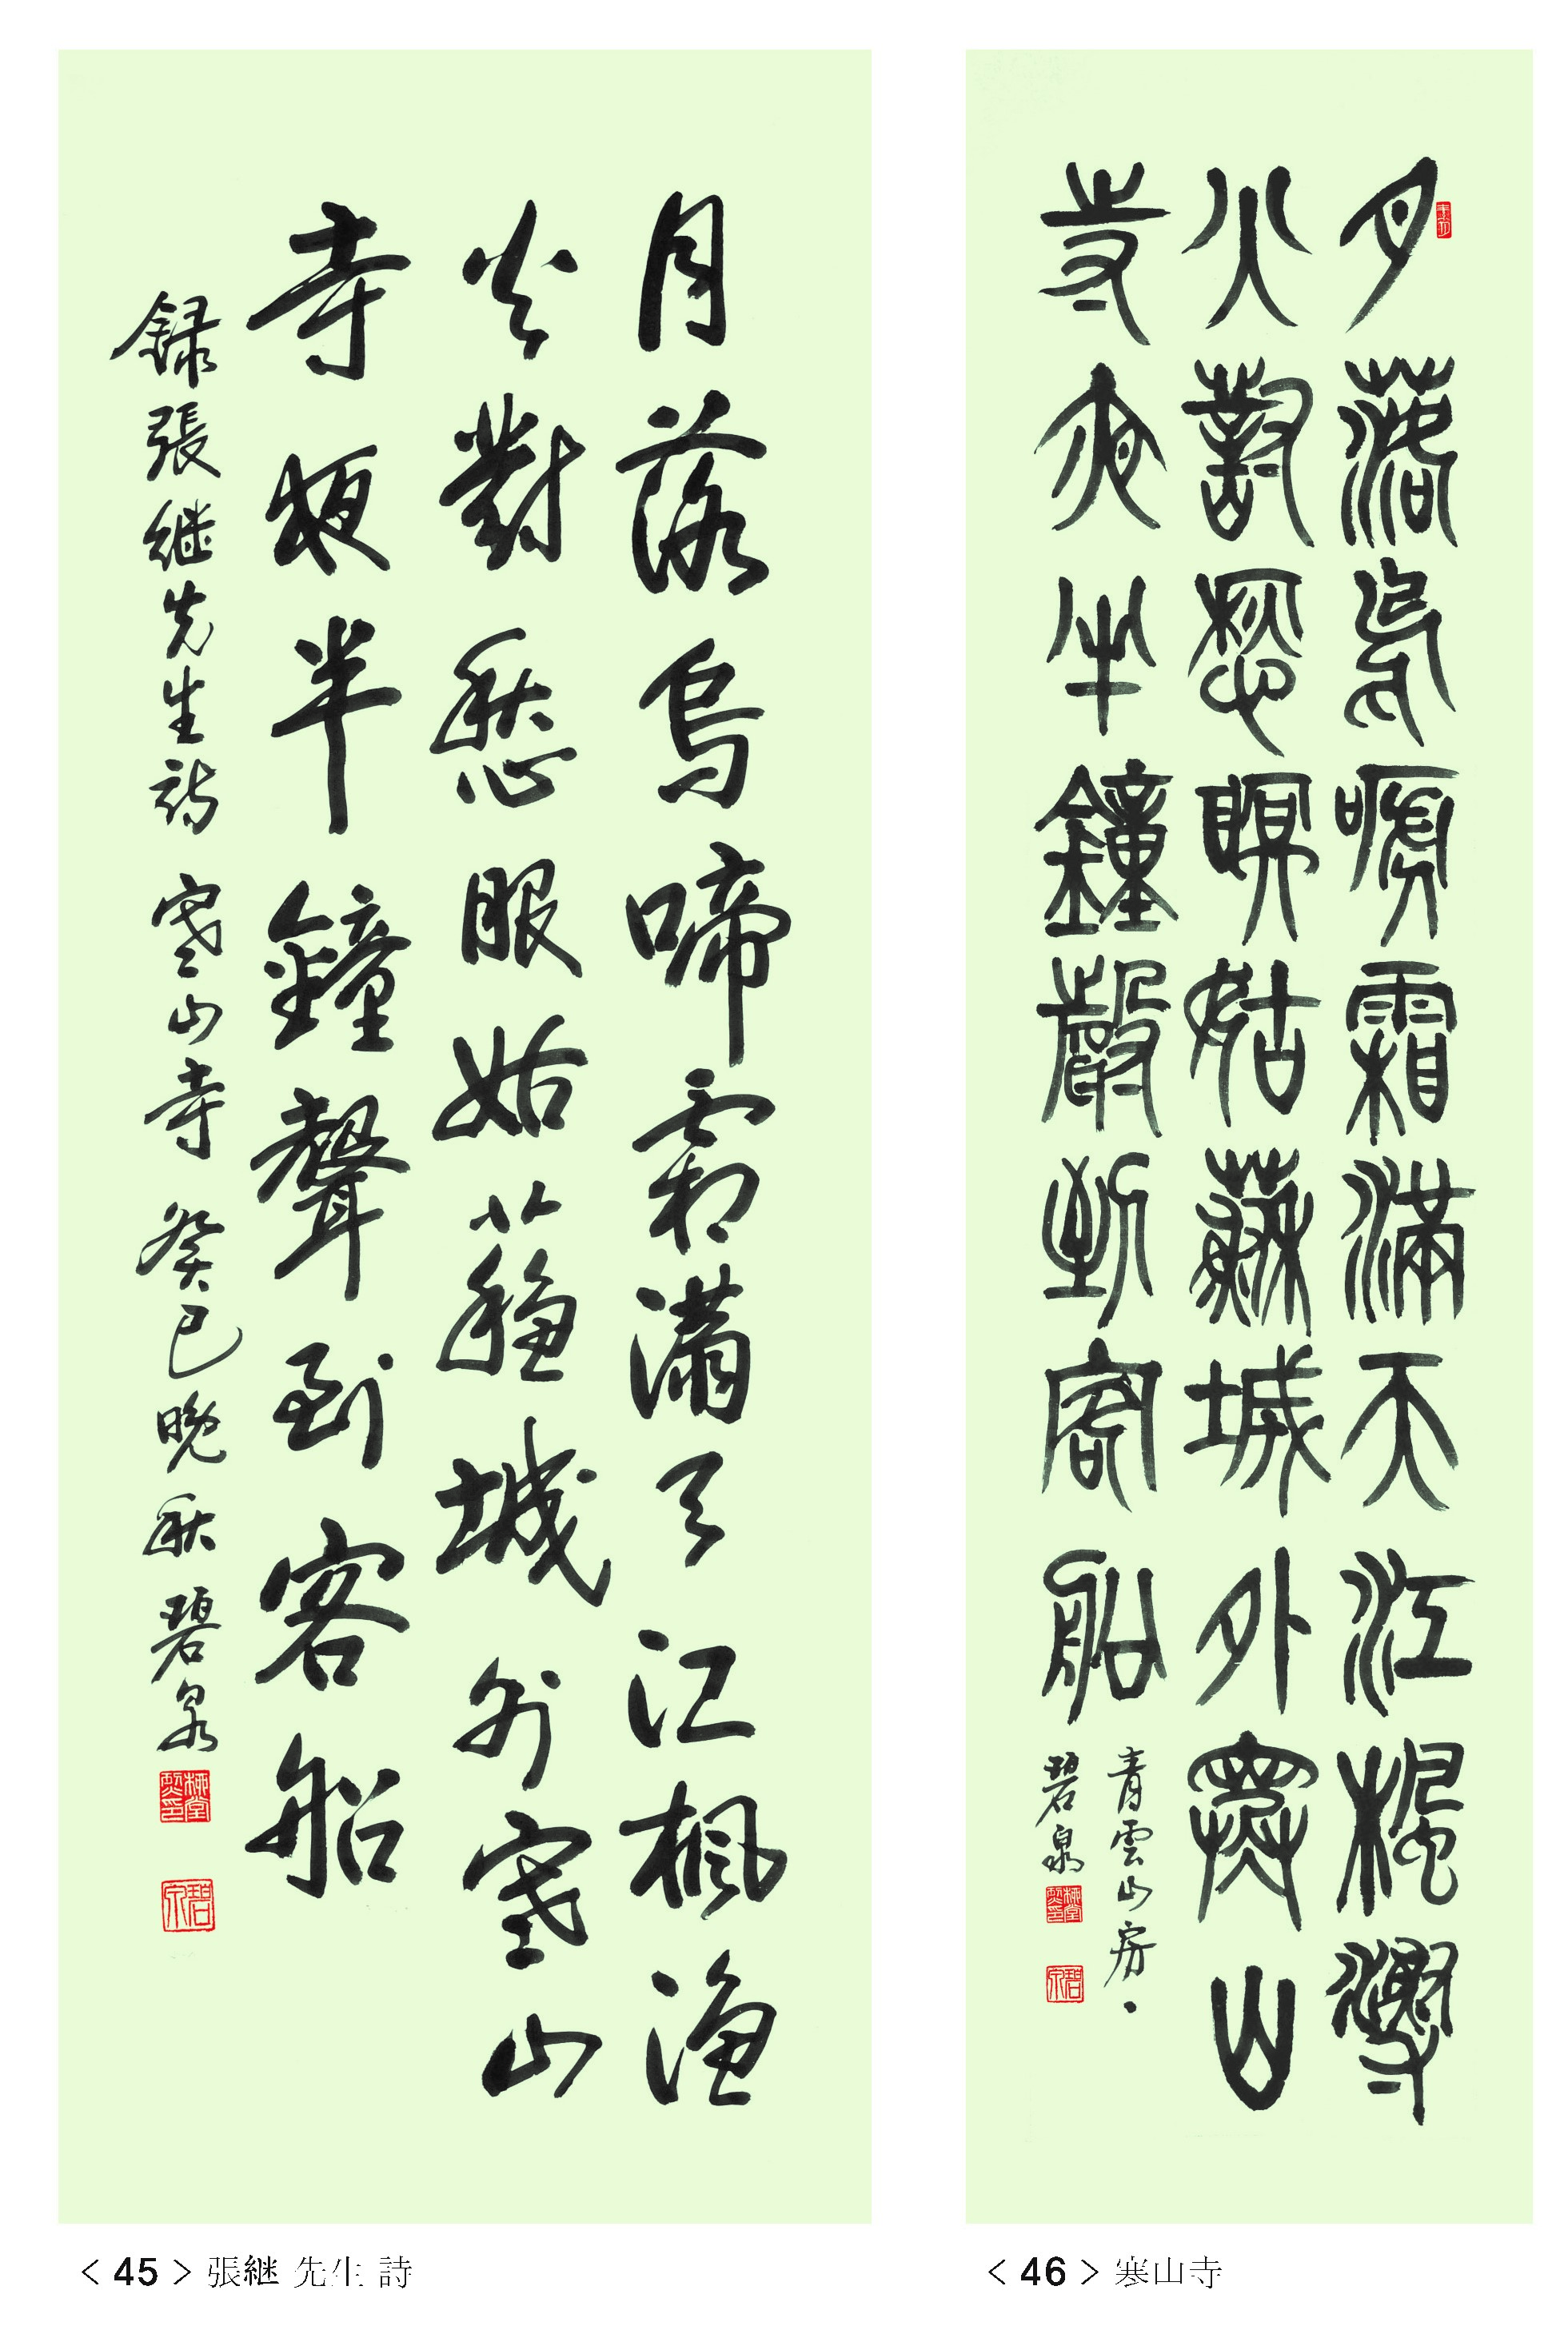 月落烏啼霜滿天江楓漁
火對愁眠姑蘇城外寒山
寺夜半鐘聲到客船
録張継先生詩 寒山寺 癸巳晩秋 碧泉
碧泉
< 45 > 張継 先生 詩
月落烏嗁霜滿天江楓漁
火對愁瞑姑蘇城外寒山
寺夜半鐘聲到客船
青雲山房、
碧泉
碧泉
< 46 > 寒山寺